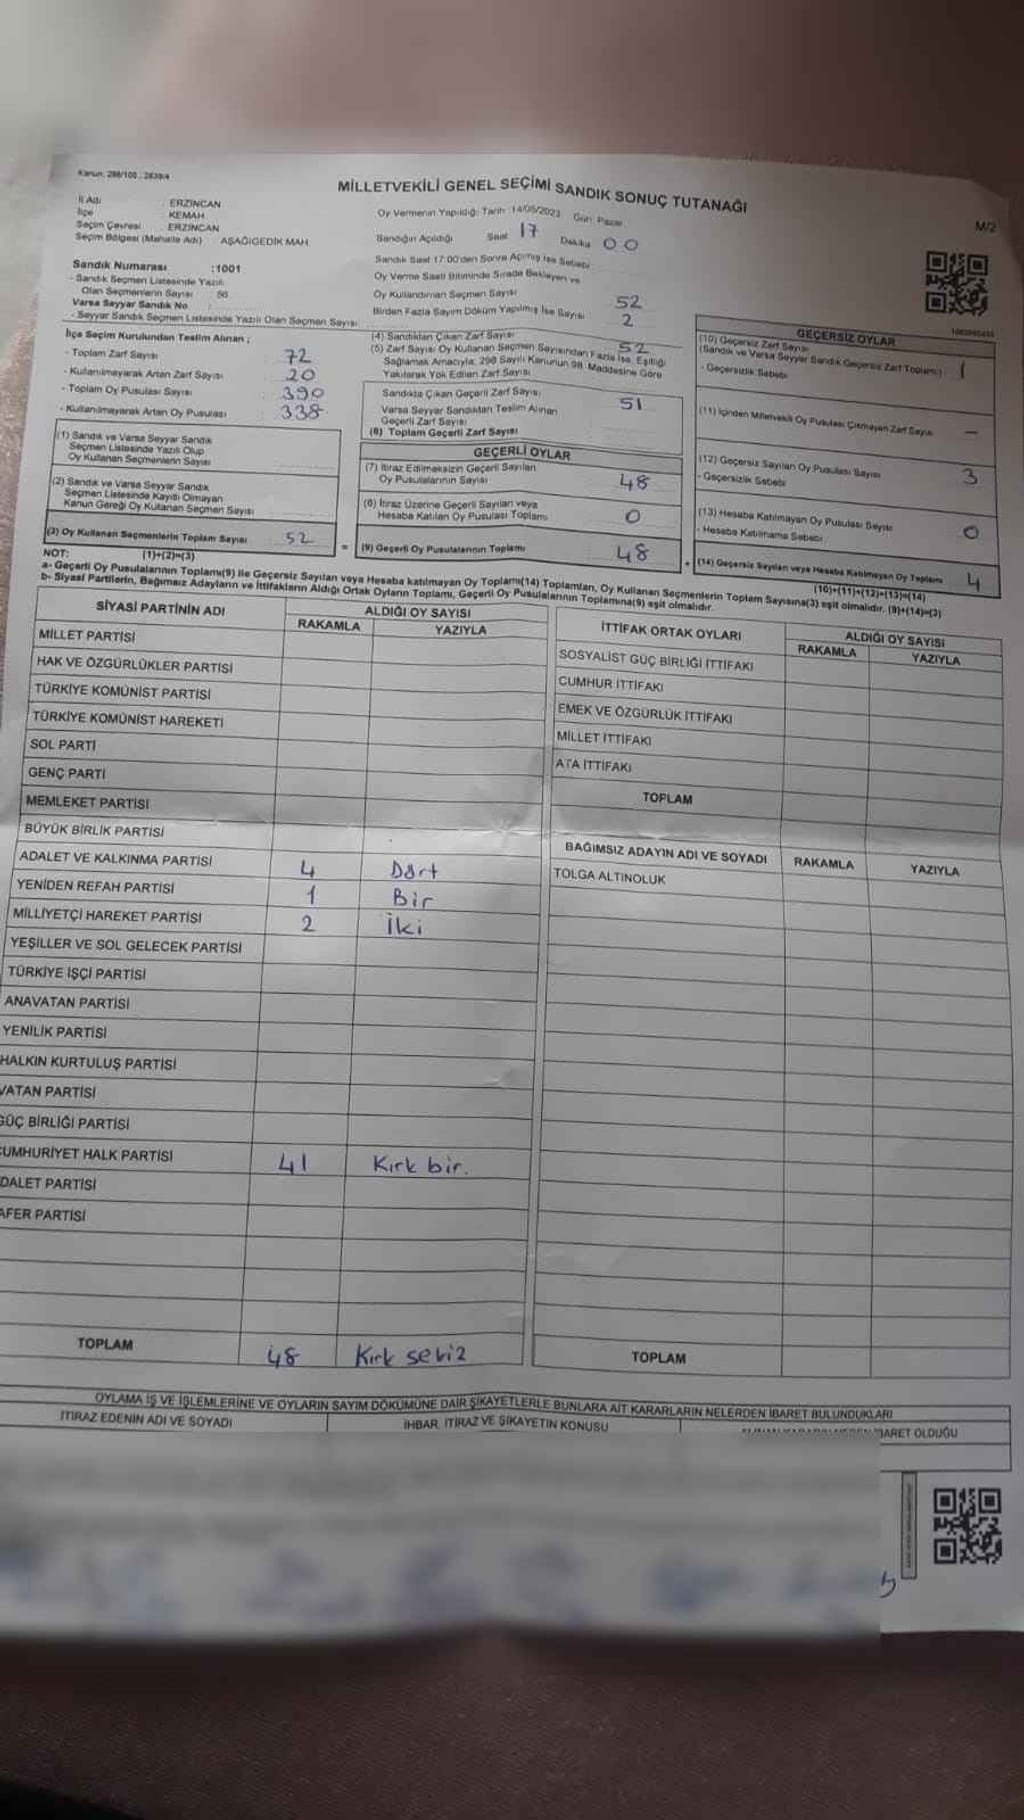 Kanun: 298/100 - 2839/4
MİLLETVEKİLİ GENEL SEÇİMİ SANDIK SONUÇ TUTANAĞI
M/2
İl Adı : ERZİNCAN
İlçe KEMAH
Seçim Çevresi ERZİNCAN
Seçim Bölgesi (Mahalle Adı) AŞAĞIGEDİK MAH.
Oy Vermenin Yapıldığı Tarih : 14/05/2023 Gün: Pazar
Sandığın Açıldığı Saat 17 Dakika 00
Sandık Saat 17:00'den Sonra Açılmış İse Sebebi
Oy Verme Saati Bitiminde Sırada Bekleyen ve
Oy Kullandırılan Seçmen Sayısı 52
Birden Fazla Sayım Döküm Yapılmış İse Sayısı 2
Sandık Numarası :1001
- Sandık Seçmen Listesinde Yazılı
Olan Seçmenlerin Sayısı 56
Varsa Seyyar Sandık No
- Seyyar Sandık Seçmen Listesinde Yazılı Olan Seçmen Sayısı
İlçe Seçim Kurulundan Teslim Alınan ;
- Toplam Zarf Sayısı 72
- Kullanılmayarak Artan Zarf Sayısı 20
- Toplam Oy Pusulası Sayısı 390
- Kullanılmayarak Artan Oy Pusulası 338
(1) Sandık ve Varsa Seyyar Sandık
Seçmen Listesinde Yazılı Olup
Oy Kullanan Seçmenlerin Sayısı
(2) Sandık ve Varsa Seyyar Sandık
Seçmen Listesinde Kayıtlı Olmayan
Kanun Gereği Oy Kullanan Seçmen Sayısı
(3) Oy Kullanan Seçmenlerin Toplam Sayısı 52
(1)+(2)=(3)
(4) Sandıktan Çıkan Zarf Sayısı 52
(5) Zarf Sayısı Oy Kullanan Seçmen Sayısından Fazla İse, Eşitliği
Sağlamak Amacıyla, 298 Sayılı Kanunun 98. Maddesine Göre
Yakılarak Yok Edilen Zarf Sayısı
Sandıkta Çıkan Geçerli Zarf Sayısı 51
Varsa Seyyar Sandıktan Teslim Alınan
Geçerli Zarf Sayısı
(6) Toplam Geçerli Zarf Sayısı
GEÇERLİ OYLAR
(7) İtiraz Edilmeksizin Geçerli Sayılan
Oy Pusulalarının Sayısı 48
(8) İtiraz Üzerine Geçerli Sayılan veya
Hesaba Katılan Oy Pusulası Toplamı 0
= (9) Geçerli Oy Pusulalarının Toplamı 48
GEÇERSİZ OYLAR
(10) Geçersiz Zarf Sayısı
(Sandık ve Varsa Seyyar Sandık Geçersiz Zarf Toplamı) 1
- Geçersizlik Sebebi
(11) İçinden Milletvekili Oy Pusulası Çıkmayan Zarf Sayısı —
(12) Geçersiz Sayılan Oy Pusulası Sayısı 3
- Geçersizlik Sebebi
(13) Hesaba Katılmayan Oy Pusulası Sayısı 0
- Hesaba Katılmama Sebebi
+ (14) Geçersiz Sayılan veya Hesaba Katılmayan Oy Toplamı 4
(10)+(11)+(12)+(13)=(14)
NOT:
a- Geçerli Oy Pusulalarının Toplamı(9) ile Geçersiz Sayılan veya Hesaba katılmayan Oy Toplamı(14) Toplamları, Oy Kullanan Seçmenlerin Toplam Sayısına(3) eşit olmalıdır. (9)+(14)=(3)
b- Siyasi Partilerin, Bağımsız Adayların ve İttifakların Aldığı Ortak Oyların Toplamı, Geçerli Oy Pusulalarının Toplamına(9) eşit olmalıdır.
SİYASİ PARTİNİN ADI ALDIĞI OY SAYISI
RAKAMLA YAZIYLA
MİLLET PARTİSİ
HAK VE ÖZGÜRLÜKLER PARTİSİ
TÜRKİYE KOMÜNİST PARTİSİ
TÜRKİYE KOMÜNİST HAREKETİ
SOL PARTİ
GENÇ PARTİ
MEMLEKET PARTİSİ
BÜYÜK BİRLİK PARTİSİ
ADALET VE KALKINMA PARTİSİ 4 Dört
YENİDEN REFAH PARTİSİ 1 Bir
MİLLİYETÇİ HAREKET PARTİSİ 2 İki
YEŞİLLER VE SOL GELECEK PARTİSİ
TÜRKİYE İŞÇİ PARTİSİ
ANAVATAN PARTİSİ
YENİLİK PARTİSİ
HALKIN KURTULUŞ PARTİSİ
VATAN PARTİSİ
GÜÇ BİRLİĞİ PARTİSİ
CUMHURİYET HALK PARTİSİ 41 Kırk bir.
DALET PARTİSİ
AFER PARTİSİ
TOPLAM 48 Kırk sekiz
İTTİFAK ORTAK OYLARI ALDIĞI OY SAYISI
RAKAMLA YAZIYLA
SOSYALİST GÜÇ BİRLİĞİ İTTİFAKI
CUMHUR İTTİFAKI
EMEK VE ÖZGÜRLÜK İTTİFAKI
MİLLET İTTİFAKI
ATA İTTİFAKI
TOPLAM
BAĞIMSIZ ADAYIN ADI VE SOYADI RAKAMLA YAZIYLA
TOLGA ALTINOLUK
TOPLAM
OYLAMA İŞ VE İŞLEMLERİNE VE OYLARIN SAYIM DÖKÜMÜNE DAİR ŞİKAYETLERLE BUNLARA AİT KARARLARIN NELERDEN İBARET BULUNDUKLARI
İTİRAZ EDENİN ADI VE SOYADI İHBAR, İTİRAZ VE ŞİKAYETİN KONUSU
İBARET OLDUĞU